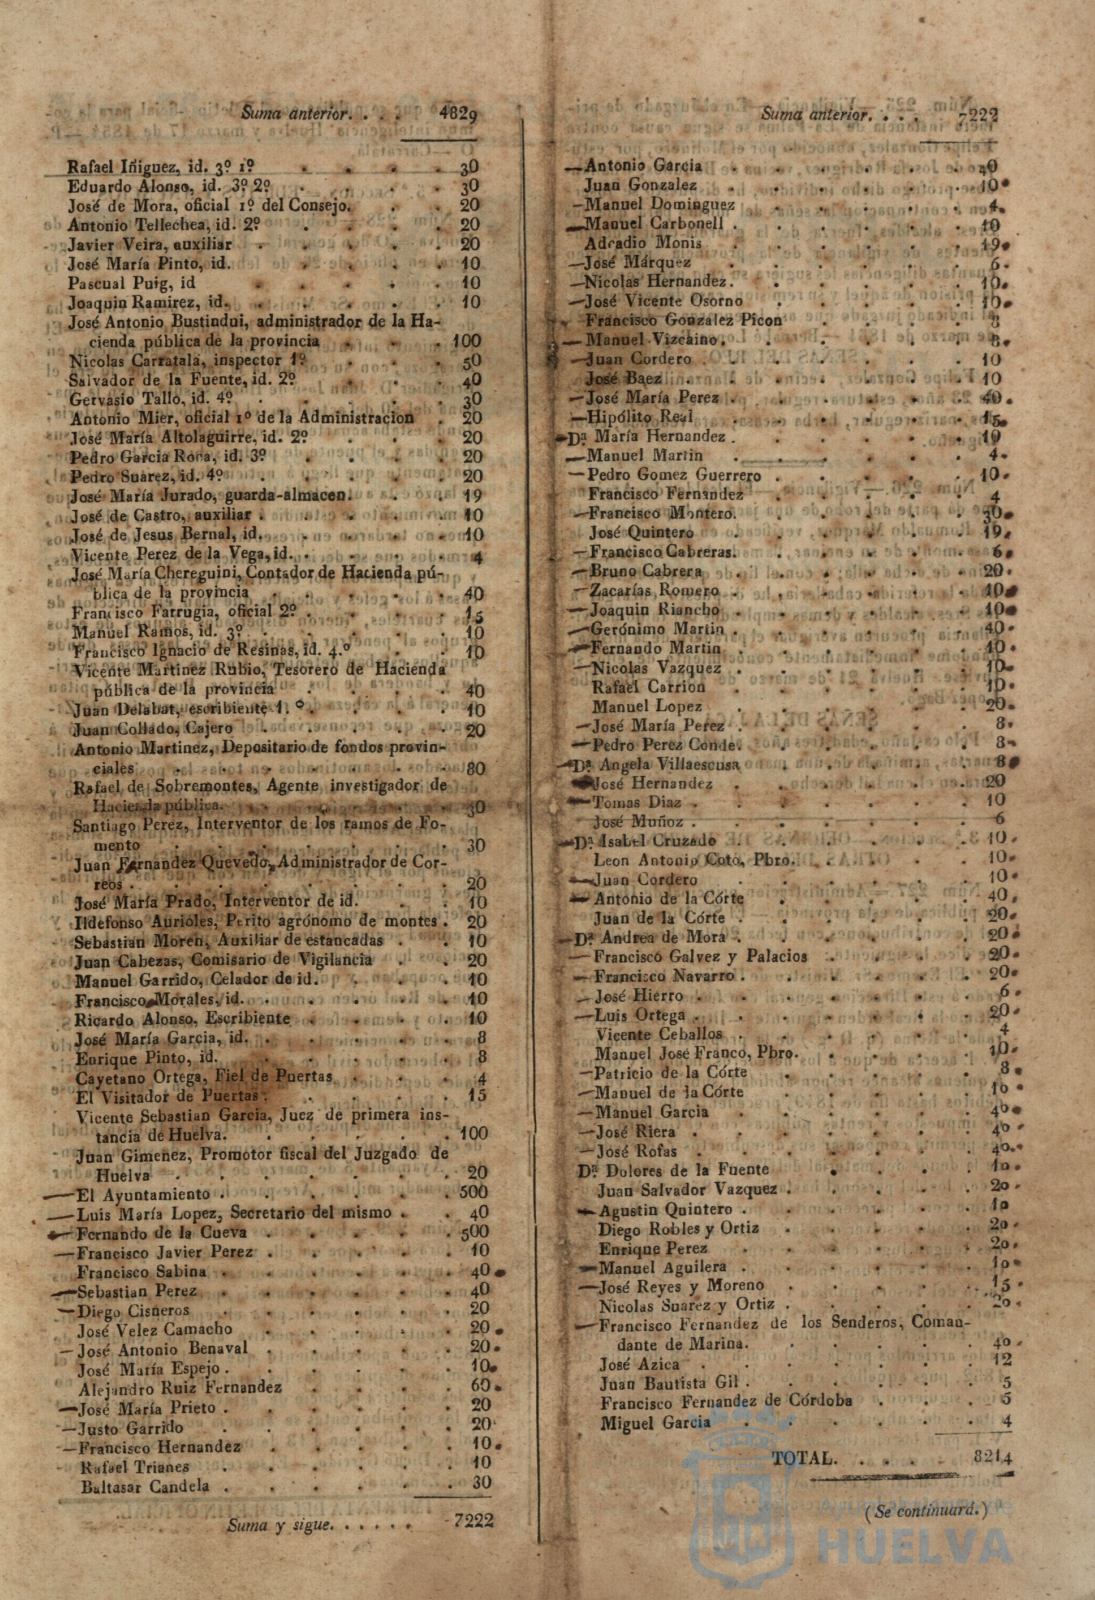 Suma anterior. . . . 4829
Rafael Iñiguez, id. 3º 1º . . . . 30
Eduardo Alonso, id. 3º 2º . . . . 30
José de Mora, oficial 1º del Consejo. . . 20
Antonio Tellechea, id. 2º . . . . 20
Javier Veira, auxiliar . . . . . 20
José María Pinto, id. . . . . 10
Pascual Puig, id . . . . . 10
Joaquin Ramirez, id. . . . . . 10
José Antonio Bustindui, administrador de la Ha-
cienda pública de la provincia . . . 100
Nicolas Carratalá, inspector 1º . . . 50
Salvador de la Fuente, id. 2º . . . 40
Gervasio Tallo, id. 4º . . . . . 30
Antonio Mier, oficial 1º de la Administracion . 20
José María Altolaguirre, id. 2º . . . 20
Pedro Garcia Roca, id. 3º . . . . 20
Pedro Suarez, id. 4º . . . . 20
José María Jurado, guarda-almacen. . . 19
José de Castro, auxiliar . . . . . 10
José de Jesus Bernal, id. . . . . 10
Vicente Perez de la Vega, id. . . . . 4
José María Chereguini, Contador de Hacienda pú-
blica de la provincia . . . . . 40
Francisco Farrugia, oficial 2º . . . . 15
Manuel Ramos, id. 3º . . . . . 10
Francisco Ignacio de Resinas, id. 4.º . . 10
Vicente Martinez Rubio, Tesorero de Hacienda
pública de la provincia . . . . 40
Juan Delabat, escribiente 1.º . . . . 10
Juan Collado, Cajero . . . . . 20
Antonio Martinez, Depositario de fondos provin-
ciales . . . . . . 80
Rafael de Sobremontes, Agente investigador de
Hacienda pública. . . . . . 30
Santiago Perez, Interventor de los ramos de Fo-
mento . . . . . . . 30
Juan Fernandez Quevedo, Administrador de Cor-
reos . . . . . . . 20
José María Prado, Interventor de id. . . 10
Ildefonso Aurioles, Perito agrónomo de montes . 20
Sebastian Moren, Auxiliar de estancadas . . 10
Juan Cabezas, Comisario de Vigilancia . . 20
Manuel Garrido, Celador de id. . . . 10
Francisco Morales, id. . . . . . 10
Ricardo Alonso, Escribiente . . . . 10
José María Garcia, id. . . . . . 8
Enrique Pinto, id. . . . . . 8
Cayetano Ortega, Fiel de Puertas . . . 4
El Visitador de Puertas . . . . . 15
Vicente Sebastian Garcia, Juez de primera ins-
tancia de Huelva. . . . . . 100
Juan Gimenez, Promotor fiscal del Juzgado de
Huelva . . . . . . . 20
—El Ayuntamiento . . . . . . 500
—Luis María Lopez, Secretario del mismo . . 40
—Fernando de la Cueva . . . . . 500
—Francisco Javier Perez . . . . . 10
Francisco Sabina . . . . . . 40
—Sebastian Perez . . . . . . 40
—Diego Cisneros . . . . . . 20
José Velez Camacho . . . . . 20
—José Antonio Benaval . . . . . 20
José María Espejo . . . . . . 10
Alejandro Ruiz Fernandez . . . . 60
—José María Prieto . . . . . . 20
—Justo Garrido . . . . . . 20
—Francisco Hernandez . . . . . 10
Rafael Trianes . . . . . . 10
Baltasar Candela . . . . . . 30
Suma y sigue. . . . . . 7222
Suma anterior. . . . 7222
—Antonio Garcia . . . . . . 40
Juan Gonzalez . . . . . . 10
—Manuel Dominguez . . . . . 4
—Manuel Carbonell . . . . . . 10
Adradio Monis . . . . . . 19
—José Márquez . . . . . . 6
—Nicolas Hernandez. . . . . . 10
—José Vicente Osorno . . . . . 10
—Francisco Gonzalez Picon . . . . 8
—Manuel Vizcaino. . . . . . . 8
—Juan Cordero . . . . . . 10
José Baez . . . . . . . 10
—José María Perez . . . . . . 40
—Hipólito Real . . . . . . 15
—Dª María Hernandez . . . . . 10
—Manuel Martin . . . . . . 4
—Pedro Gomez Guerrero . . . . . 10
Francisco Fernandez . . . . . 4
—Francisco Montero. . . . . . 30
José Quintero . . . . . . 19
—Francisco Cabreras. . . . . . 6
—Bruno Cabrera . . . . . . 20
—Zacarías Romero . . . . . . 10
—Joaquin Riancho . . . . . . 10
—Gerónimo Martin . . . . . . 40
—Fernando Martin . . . . . . 10
—Nicolas Vazquez . . . . . . 10
Rafael Carrion . . . . . . 10
Manuel Lopez . . . . . . 20
—José María Perez . . . . . . 8
—Pedro Perez Conde. . . . . . 8
—Dª Angela Villaescusa . . . . . 8
José Hernandez . . . . . . 20
—Tomas Diaz . . . . . . . 10
José Muñoz . . . . . . . 6
—Dª Isabel Cruzado . . . . . . 10
Leon Antonio Coto, Pbro. . . . . 10
—Juan Cordero . . . . . . 10
—Antonio de la Córte . . . . . 40
Juan de la Córte . . . . . . 20
—Dª Andrea de Mora . . . . . . 20
—Francisco Galvez y Palacios . . . . 20
—Francisco Navarro . . . . . . 20
—José Hierro . . . . . . . 6
—Luis Ortega . . . . . . . 20
Vicente Ceballos . . . . . . 4
Manuel José Franco, Pbro. . . . . 10
—Patricio de la Córte . . . . . 8
—Manuel de la Córte . . . . . 10
—Manuel Garcia . . . . . . 40
—José Riera . . . . . . . 40
—José Rofas . . . . . . . 40
Dª Dolores de la Fuente . . . . 10
Juan Salvador Vazquez . . . . . 20
—Agustin Quintero . . . . . . 10
Diego Robles y Ortiz . . . . . 20
Enrique Perez . . . . . . 20
—Manuel Aguilera . . . . . . 10
—José Reyes y Moreno . . . . . 15
Nicolas Suarez y Ortiz . . . . . 20
—Francisco Fernandez de los Senderos, Coman-
dante de Marina. . . . . . 40
José Azica . . . . . . . 12
Juan Bautista Gil . . . . . . 5
Francisco Fernandez de Córdoba . . . 5
Miguel Garcia . . . . . . 4
TOTAL. . . . . 8214
(Se continuará.)
HUELVA